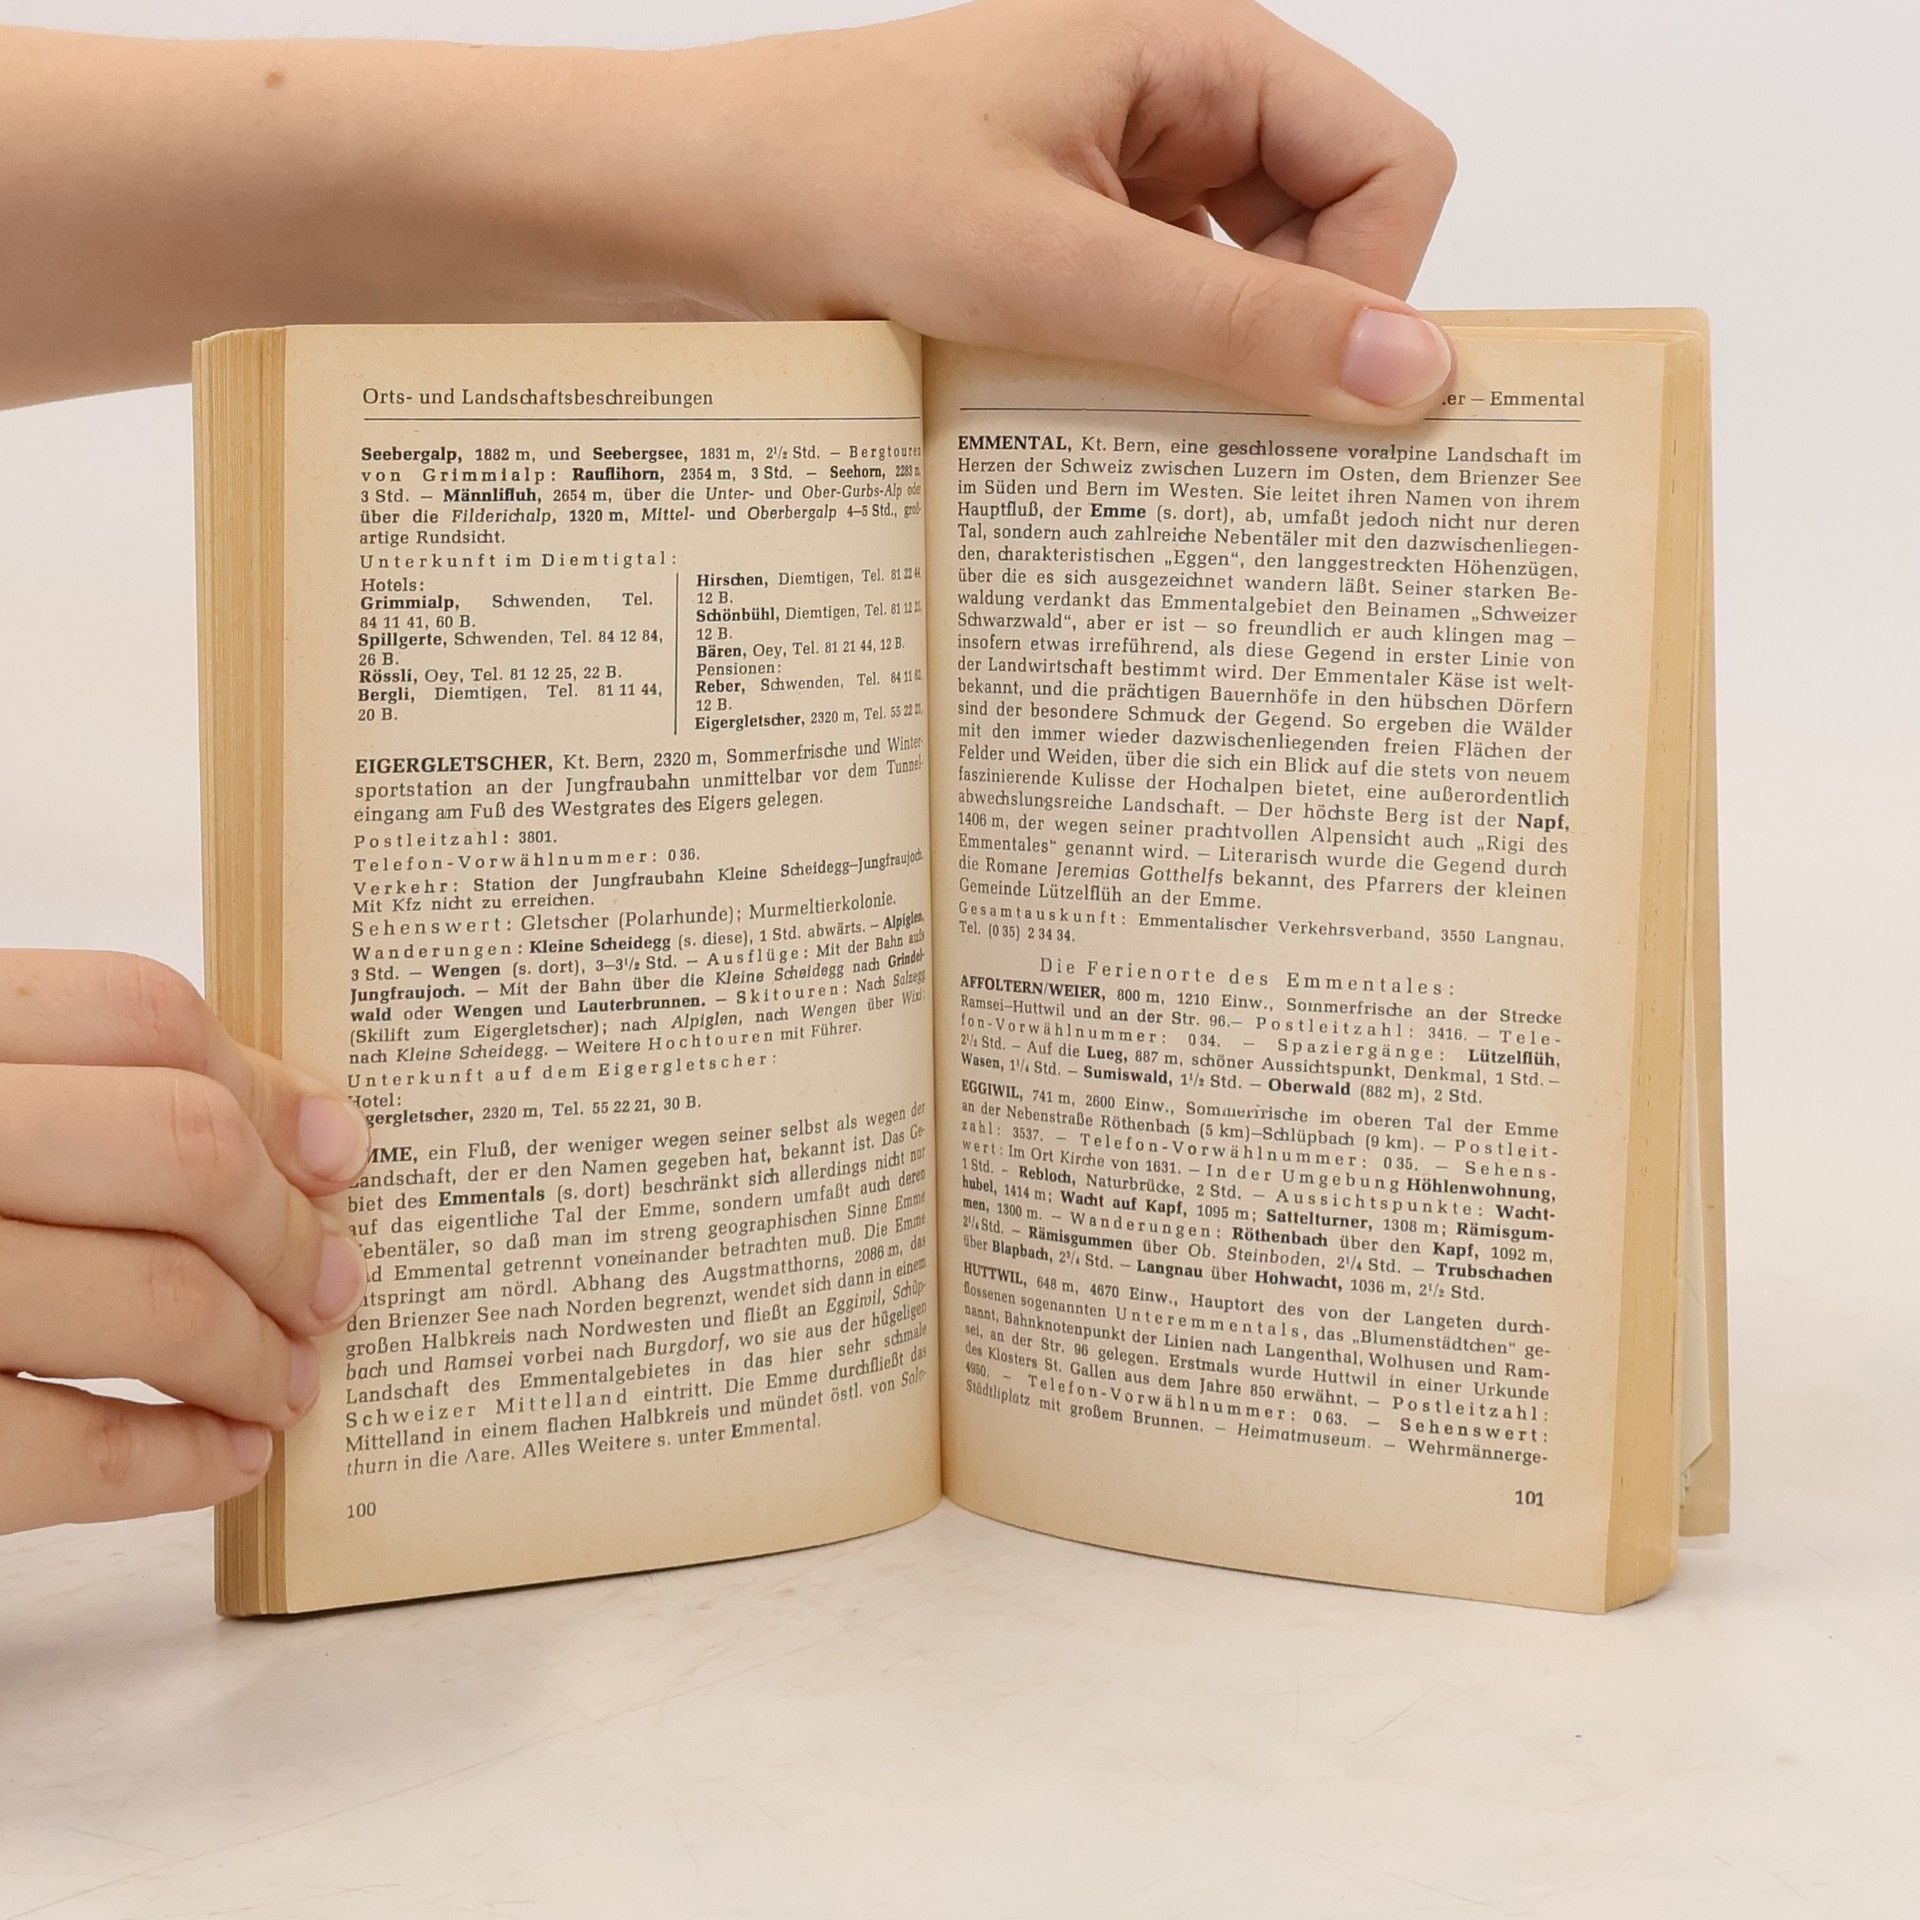 Orts- und Landschaftsbeschreibungen
Seebergalp, 1882 m, und Seebergsee, 1831 m, 2¹/₂ Std. – Bergtouren
von Grimmialp: Rauflihorn, 2354 m, 3 Std. – Seehorn, 2283 m,
3 Std. – Männlifluh, 2654 m, über die Unter- und Ober-Gurbs-Alp oder
über die Filderichalp, 1320 m, Mittel- und Oberbergalp 4–5 Std., groß-
artige Rundsicht.
Unterkunft im Diemtigtal:
Hotels:
Grimmialp, Schwenden, Tel.
84 11 41, 60 B.
Spillgerte, Schwenden, Tel. 84 12 84,
26 B.
Rössli, Oey, Tel. 81 12 25, 22 B.
Bergli, Diemtigen, Tel. 81 11 44,
20 B.
Hirschen, Diemtigen, Tel. 81 22 44,
12 B.
Schönbühl, Diemtigen, Tel. 81 12
12 B.
Bären, Oey, Tel. 81 21 44, 12 B.
Pensionen:
Reber, Schwenden, Tel. 84 11
12 B.
Eigergletscher, 2320 m, Tel. 55 22 21.
EIGERGLETSCHER, Kt. Bern, 2320 m, Sommerfrische und Winter-
sportstation an der Jungfraubahn unmittelbar vor dem Tunnel-
eingang am Fuß des Westgrates des Eigers gelegen.
Postleitzahl: 3801.
Telefon-Vorwählnummer: 036.
Verkehr: Station der Jungfraubahn Kleine Scheidegg–Jungfraujoch.
Mit Kfz nicht zu erreichen.
Sehenswert: Gletscher (Polarhunde); Murmeltierkolonie.
Wanderungen: Kleine Scheidegg (s. diese), 1 Std. abwärts. – Alpiglen,
3 Std. – Wengen (s. dort), 3–3¹/₂ Std. – Ausflüge: Mit der Bahn aufs
Jungfraujoch. – Mit der Bahn über die Kleine Scheidegg nach Grindel-
wald oder Wengen und Lauterbrunnen. – Skitouren: Nach Salzegg
(Skilift zum Eigergletscher); nach Alpiglen, nach Wengen über Wixi;
nach Kleine Scheidegg. – Weitere Hochtouren mit Führer.
Unterkunft auf dem Eigergletscher:
Hotel:
gergletscher, 2320 m, Tel. 55 22 21, 30 B.
MME, ein Fluß, der weniger wegen seiner selbst als wegen der
Landschaft, der er den Namen gegeben hat, bekannt ist. Das Ge-
biet des Emmentals (s. dort) beschränkt sich allerdings nicht nur
auf das eigentliche Tal der Emme, sondern umfaßt auch deren
ebentäler, so daß man im streng geographischen Sinne Emme
d Emmental getrennt voneinander betrachten muß. Die Emme
ntspringt am nördl. Abhang des Augstmatthorns, 2086 m, das
den Brienzer See nach Norden begrenzt, wendet sich dann in einem
großen Halbkreis nach Nordwesten und fließt an Eggiwil, Schüp-
bach und Ramsei vorbei nach Burgdorf, wo sie aus der hügeligen
Landschaft des Emmentalgebietes in das hier sehr schmale
Schweizer Mittelland eintritt. Die Emme durchfließt das
Mittelland in einem flachen Halbkreis und mündet östl. von Solo-
thurn in die Aare. Alles Weitere s. unter Emmental.
100
er – Emmental
EMMENTAL, Kt. Bern, eine geschlossene voralpine Landschaft im
Herzen der Schweiz zwischen Luzern im Osten, dem Brienzer See
im Süden und Bern im Westen. Sie leitet ihren Namen von ihrem
Hauptfluß, der Emme (s. dort), ab, umfaßt jedoch nicht nur deren
Tal, sondern auch zahlreiche Nebentäler mit den dazwischenliegen-
den, charakteristischen „Eggen“, den langgestreckten Höhenzügen,
über die es sich ausgezeichnet wandern läßt. Seiner starken Be-
waldung verdankt das Emmentalgebiet den Beinamen „Schweizer
Schwarzwald“, aber er ist – so freundlich er auch klingen mag –
insofern etwas irreführend, als diese Gegend in erster Linie von
der Landwirtschaft bestimmt wird. Der Emmentaler Käse ist welt-
bekannt, und die prächtigen Bauernhöfe in den hübschen Dörfern
sind der besondere Schmuck der Gegend. So ergeben die Wälder
mit den immer wieder dazwischenliegenden freien Flächen der
Felder und Weiden, über die sich ein Blick auf die stets von neuem
faszinierende Kulisse der Hochalpen bietet, eine außerordentlich
abwechslungsreiche Landschaft. – Der höchste Berg ist der Napf,
1406 m, der wegen seiner prachtvollen Alpensicht auch „Rigi des
Emmentales“ genannt wird. – Literarisch wurde die Gegend durch
die Romane Jeremias Gotthelfs bekannt, des Pfarrers der kleinen
Gemeinde Lützelflüh an der Emme.
Gesamtauskunft: Emmentalischer Verkehrsverband, 3550 Langnau,
Tel. (035) 2 34 34.
Die Ferienorte des Emmentales:
AFFOLTERN/WEIER, 800 m, 1210 Einw., Sommerfrische an der Strecke
Ramsei–Huttwil und an der Str. 96.– Postleitzahl: 3416. – Tele-
fon-Vorwählnummer: 034. – Spaziergänge: Lützelflüh,
2¹/₂ Std. – Auf die Lueg, 887 m, schöner Aussichtspunkt, Denkmal, 1 Std. –
Wasen, 1¹/₄ Std. – Sumiswald, 1¹/₂ Std. – Oberwald (882 m), 2 Std.
EGGIWIL, 741 m, 2600 Einw., Sommerfrische im oberen Tal der Emme
an der Nebenstraße Röthenbach (5 km)–Schlüpbach (9 km). – Postleit-
zahl: 3537. – Telefon-Vorwählnummer: 035. – Sehens-
wert: Im Ort Kirche von 1631. – In der Umgebung Höhlenwohnung,
1 Std. – Rebloch, Naturbrücke, 2 Std. – Aussichtspunkte: Wacht-
hubel, 1414 m; Wacht auf Kapf, 1095 m; Sattelturner, 1308 m; Rämisgum-
men, 1300 m. – Wanderungen: Röthenbach über den Kapf, 1092 m,
2¹/₄ Std. – Rämisgummen über Ob. Steinboden, 2¹/₄ Std. – Trubschachen
über Blapbach, 2³/₄ Std. – Langnau über Hohwacht, 1036 m, 2¹/₂ Std.
HUTTWIL, 648 m, 4670 Einw., Hauptort des von der Langeten durch-
flossenen sogenannten Unteremmentals, das „Blumenstädtchen“ ge-
nannt, Bahnknotenpunkt der Linien nach Langenthal, Wolhusen und Ram-
sei, an der Str. 96 gelegen. Erstmals wurde Huttwil in einer Urkunde
des Klosters St. Gallen aus dem Jahre 850 erwähnt. – Postleitzahl:
4950. – Telefon-Vorwählnummer: 063. – Sehenswert:
Städtliplatz mit großem Brunnen. – Heimatmuseum. – Wehrmännerge-
101